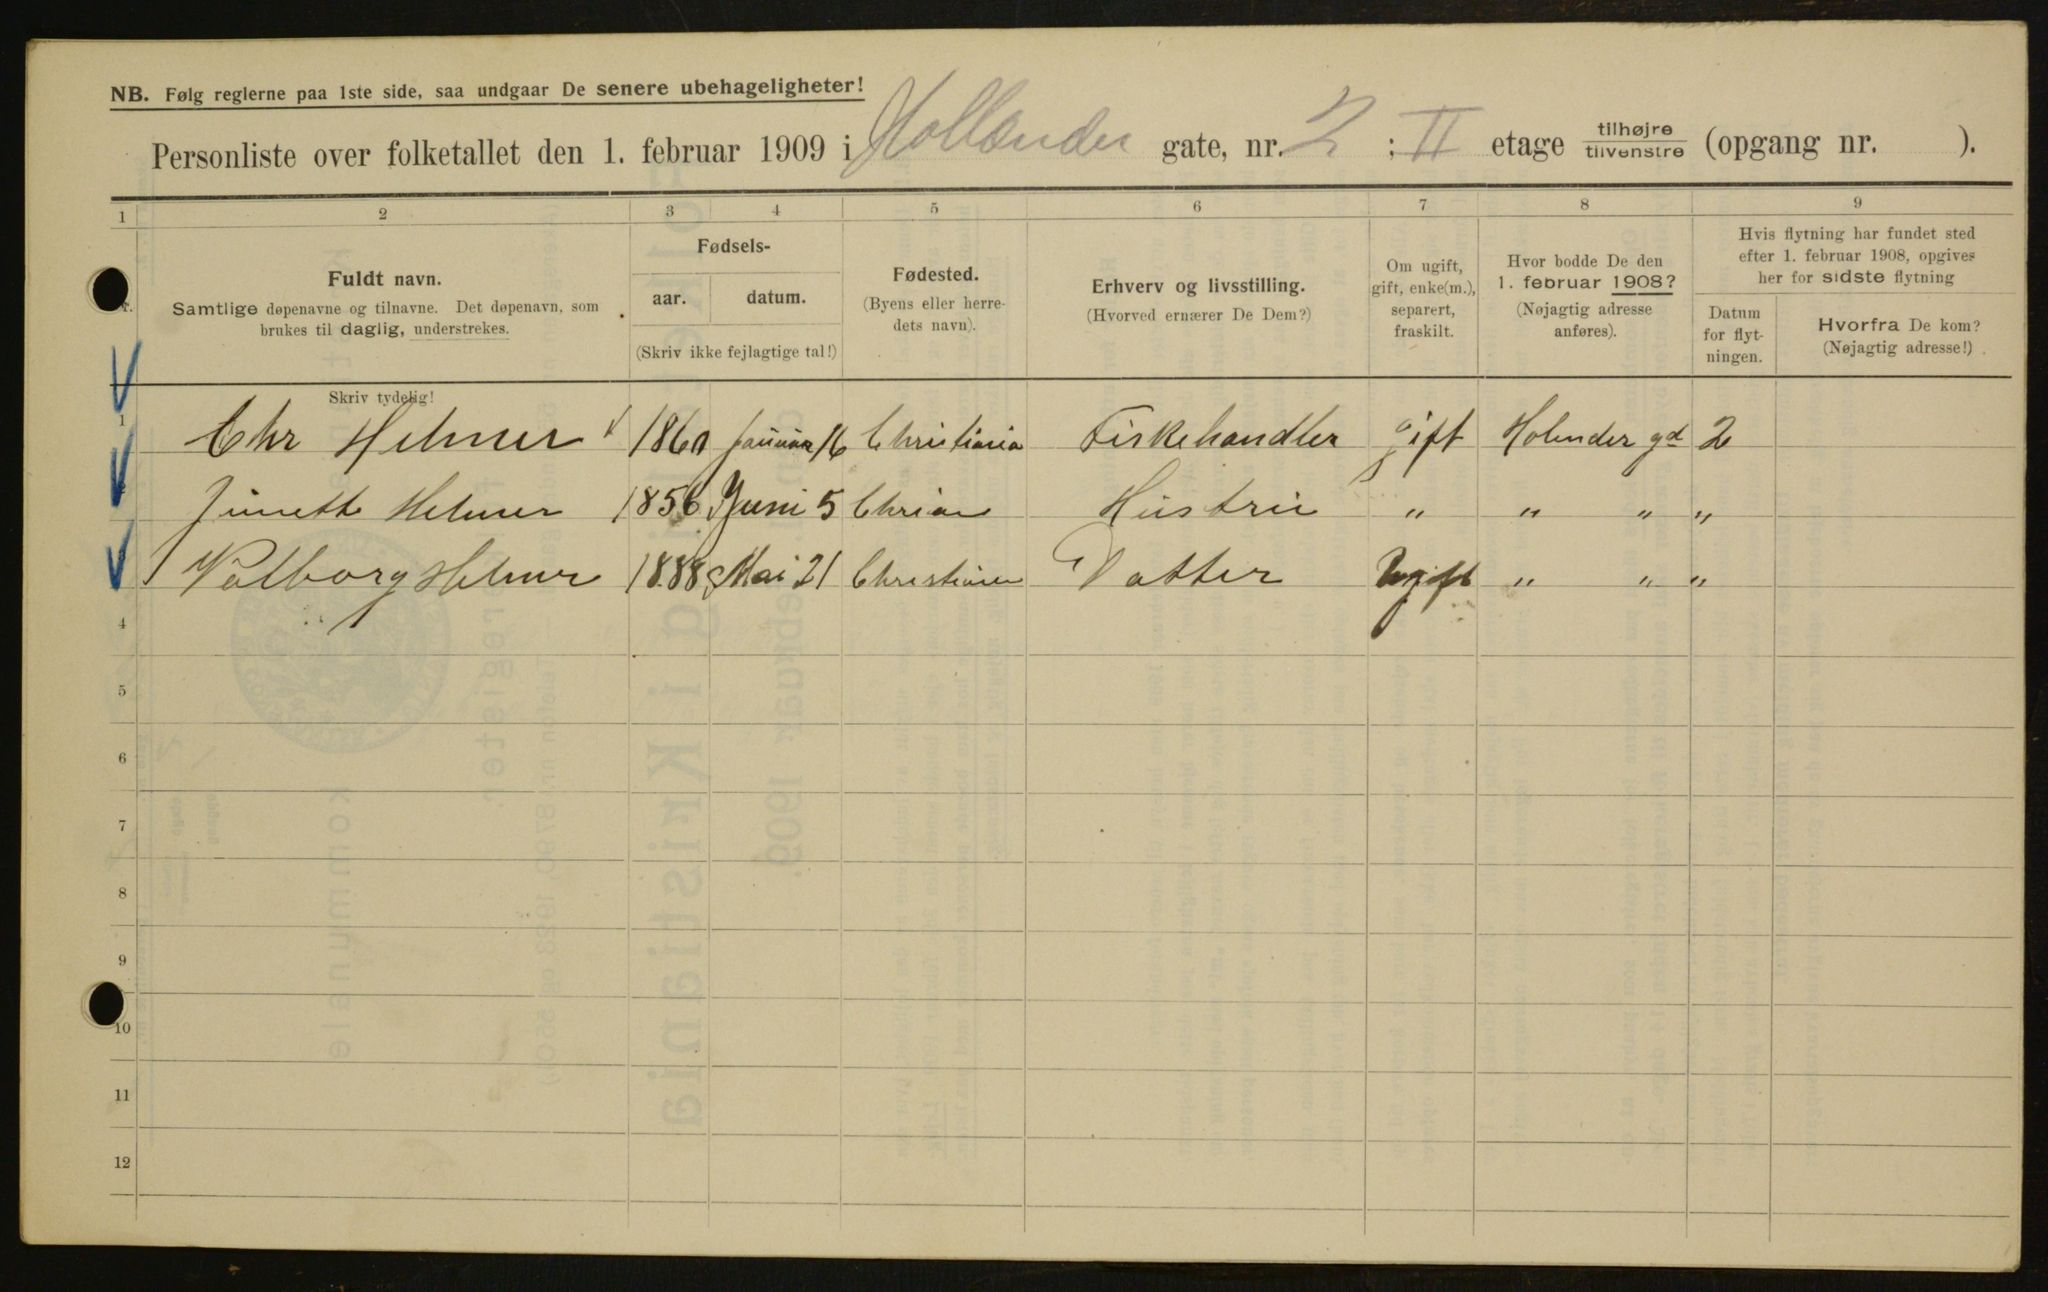 NB. Følg reglerne paa 1ste side, saa undgaar De senere ubehageligheter!
Personliste over folketallet den 1. februar 1909 i Hollænder gate, nr. 2 ; II etage tilhøjre/tilvenstre (opgang nr. ).
1 2 3 4 5 6 7 8 9
Fuldt navn.
Samtlige døpenavne og tilnavne. Det døpenavn, som
brukes til daglig, understrekes.
Skriv tydelig!
Fødsels-
aar. datum.
(Skriv ikke fejlagtige tal!)
Fødested.
(Byens eller herre-
dets navn).
Erhverv og livsstilling.
(Hvorved ernærer De Dem?)
Om ugift,
gift, enke(m.),
separert,
fraskilt.
Hvor bodde De den
1. februar 1908?
(Nøjagtig adresse
anføres).
Hvis flytning har fundet sted
efter 1. februar 1908, opgives
her for sidste flytning
Datum
for flyt-
ningen.
Hvorfra De kom?
(Nøjagtig adresse!)
1 Chr Helmer Januar 16 Christiania Fiskehandler gift Holender gd 2
Helmer 1856 Juni 5 Chrian Hustru " " " "
Valborg Helmer 1888 Mai 21 Christiania Datter Ugift " " "
4
5
6
7
8
9
10
11
12